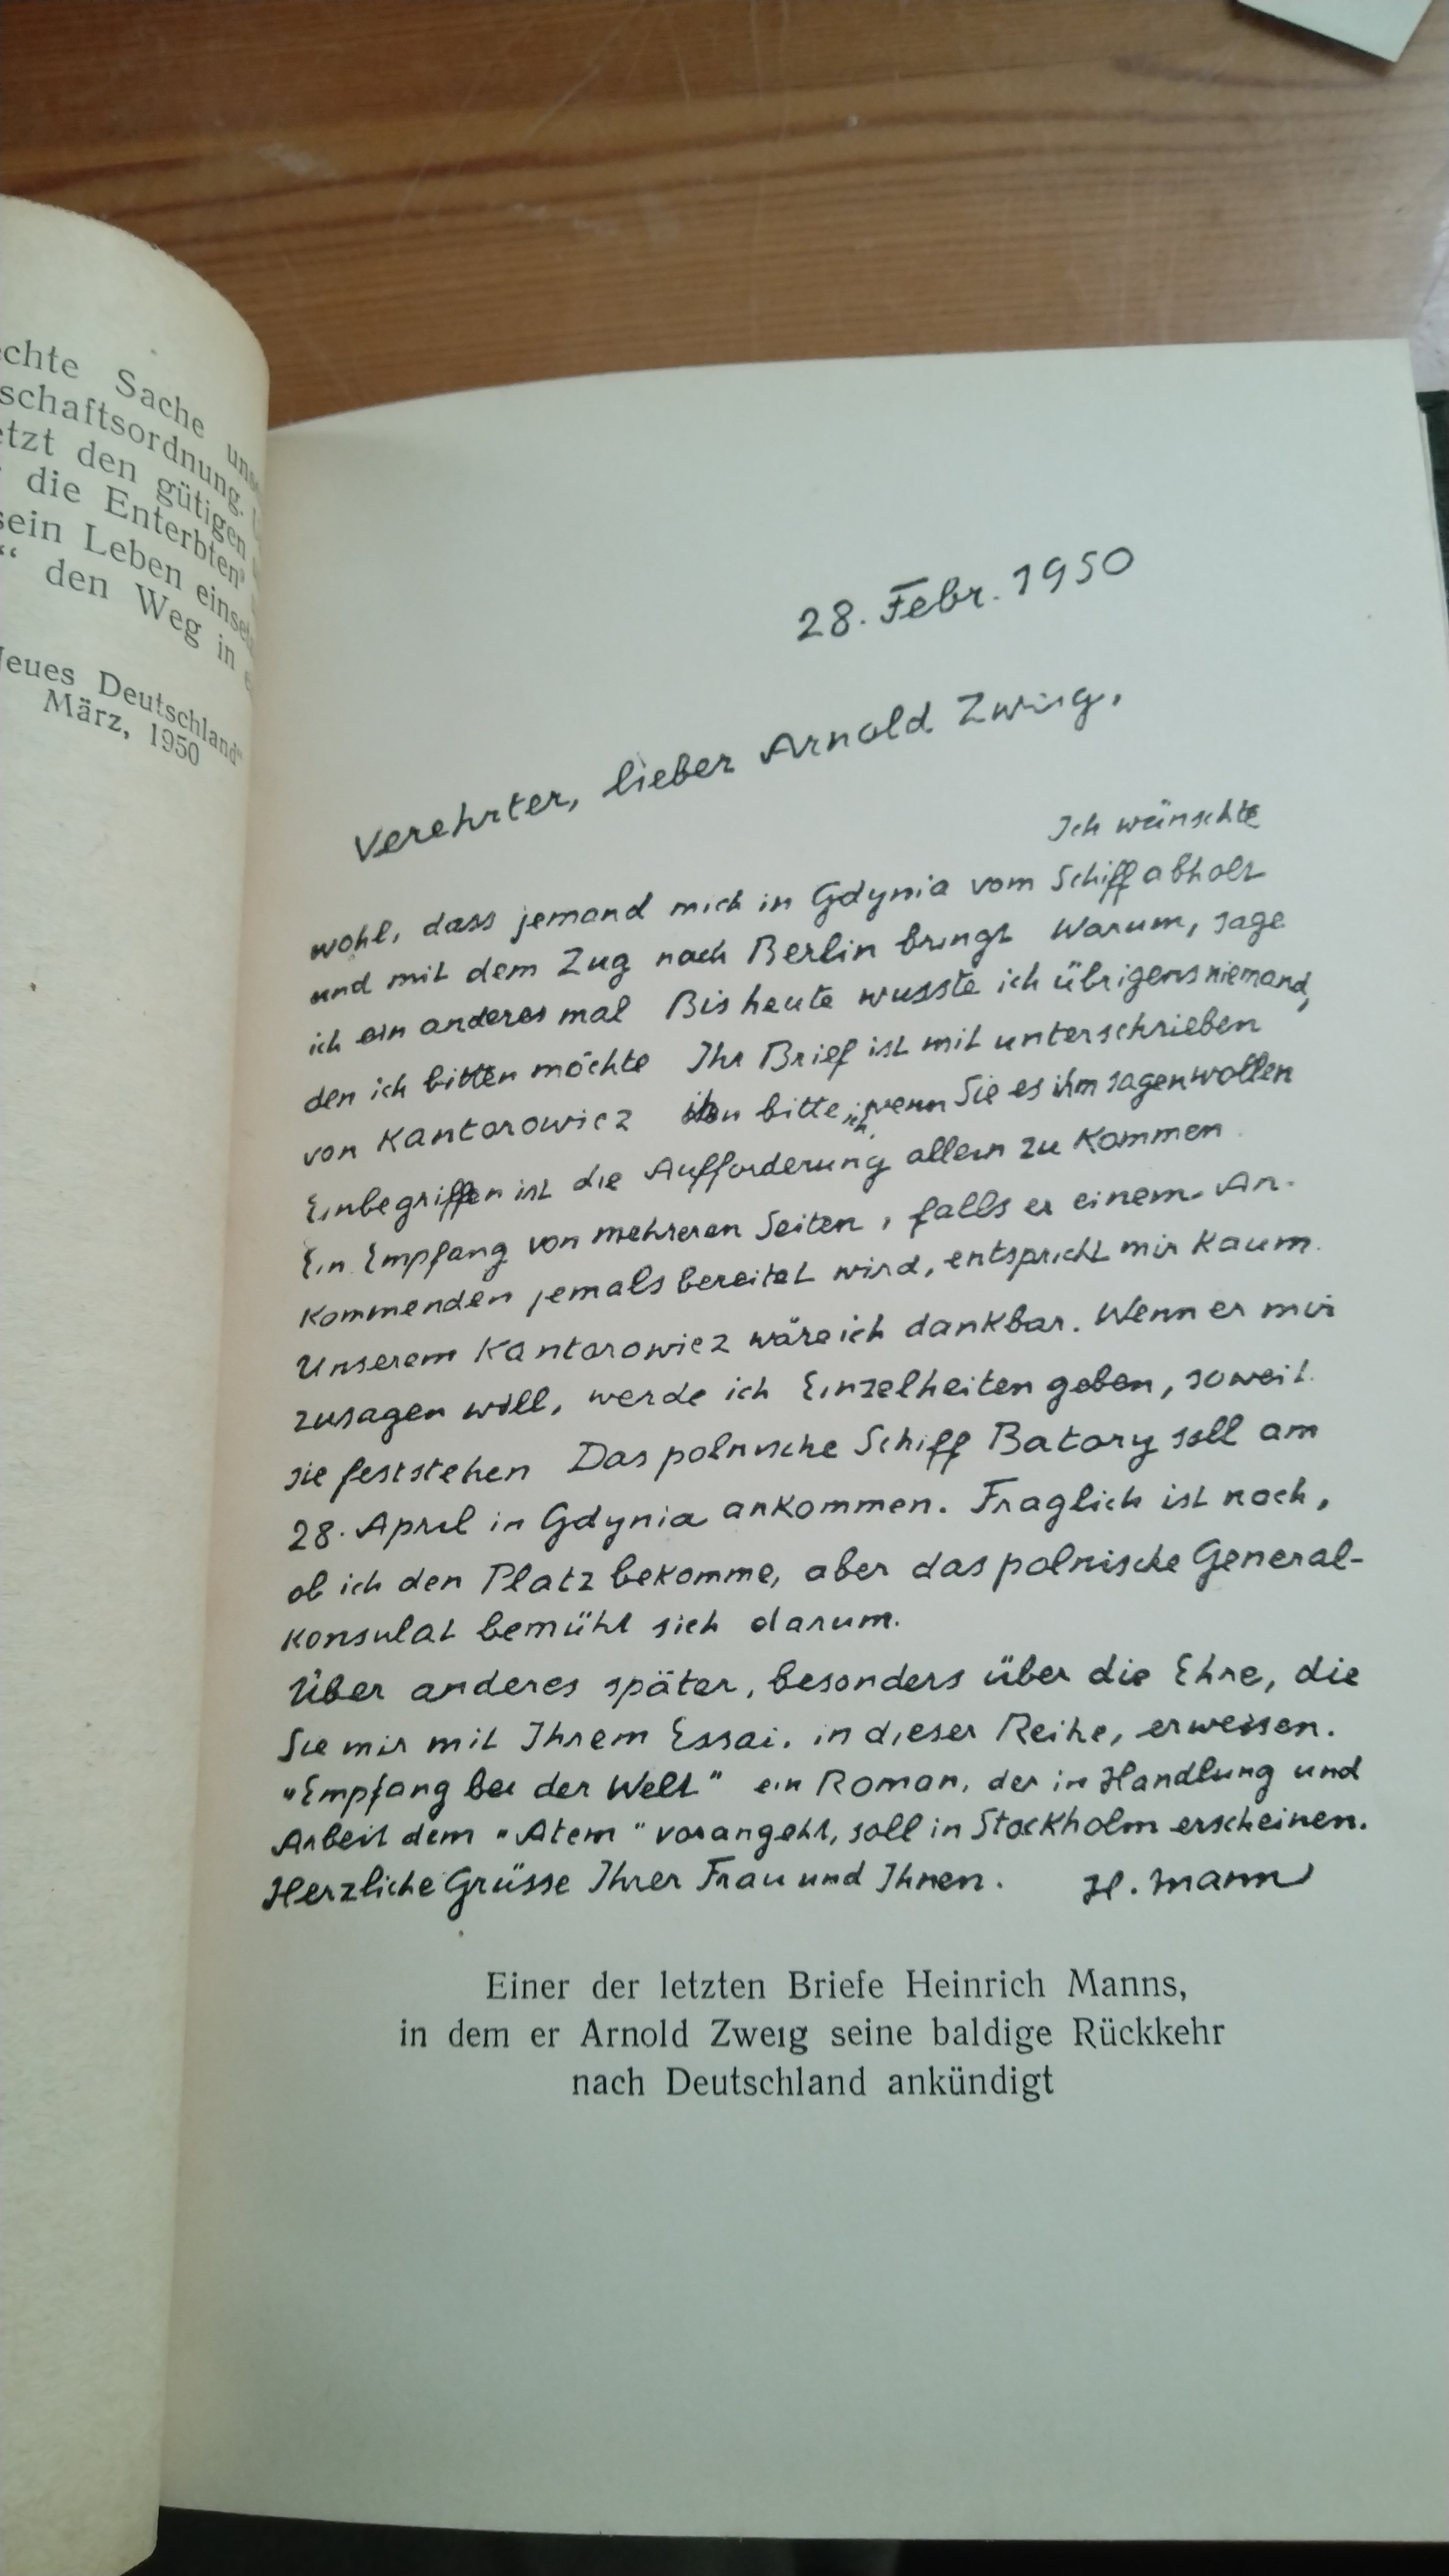 chte Sache uns
schaftsordnung.
etzt den gütigen
die Enterbten
sein Leben einse
“ den Weg in
Neues Deutschland“
März, 1950
28. Febr. 1950
Verehrter, lieber Arnold Zweig,
Ich wünschte
wohl, dass jemand mich in Gdynia vom Schiff abholt
und mit dem Zug nach Berlin bringt Warum, sage
ich ein anderes mal Bis heute wusste ich übrigens niemand,
den ich bitten möchte Ihr Brief ist mit unterschrieben
von Kantorowicz ihn bitte ich, wenn Sie es ihm sagen wollen
Einbegriffen ist die Aufforderung allein zu kommen.
Ein Empfang von mehreren Seiten, falls er einem An-
kommenden jemals bereitet wird, entspricht mir kaum.
Unserem Kantorowicz wäre ich dankbar. Wenn er mir
zusagen will, werde ich Einzelheiten geben, soweit
sie feststehen Das polnische Schiff Batory soll am
28. April in Gdynia ankommen. Fraglich ist noch,
ob ich den Platz bekomme, aber das polnische General-
konsulat bemüht sich darum.
Über anderes später, besonders über die Ehre, die
Sie mir mit Ihrem Essai, in dieser Reihe, erweisen.
„Empfang bei der Welt" ein Roman, der in Handlung und
Arbeit dem „Atem" vorangeht, soll in Stockholm erscheinen.
Herzliche Grüsse Ihrer Frau und Ihnen. H. Mann
Einer der letzten Briefe Heinrich Manns,
in dem er Arnold Zweig seine baldige Rückkehr
nach Deutschland ankündigt